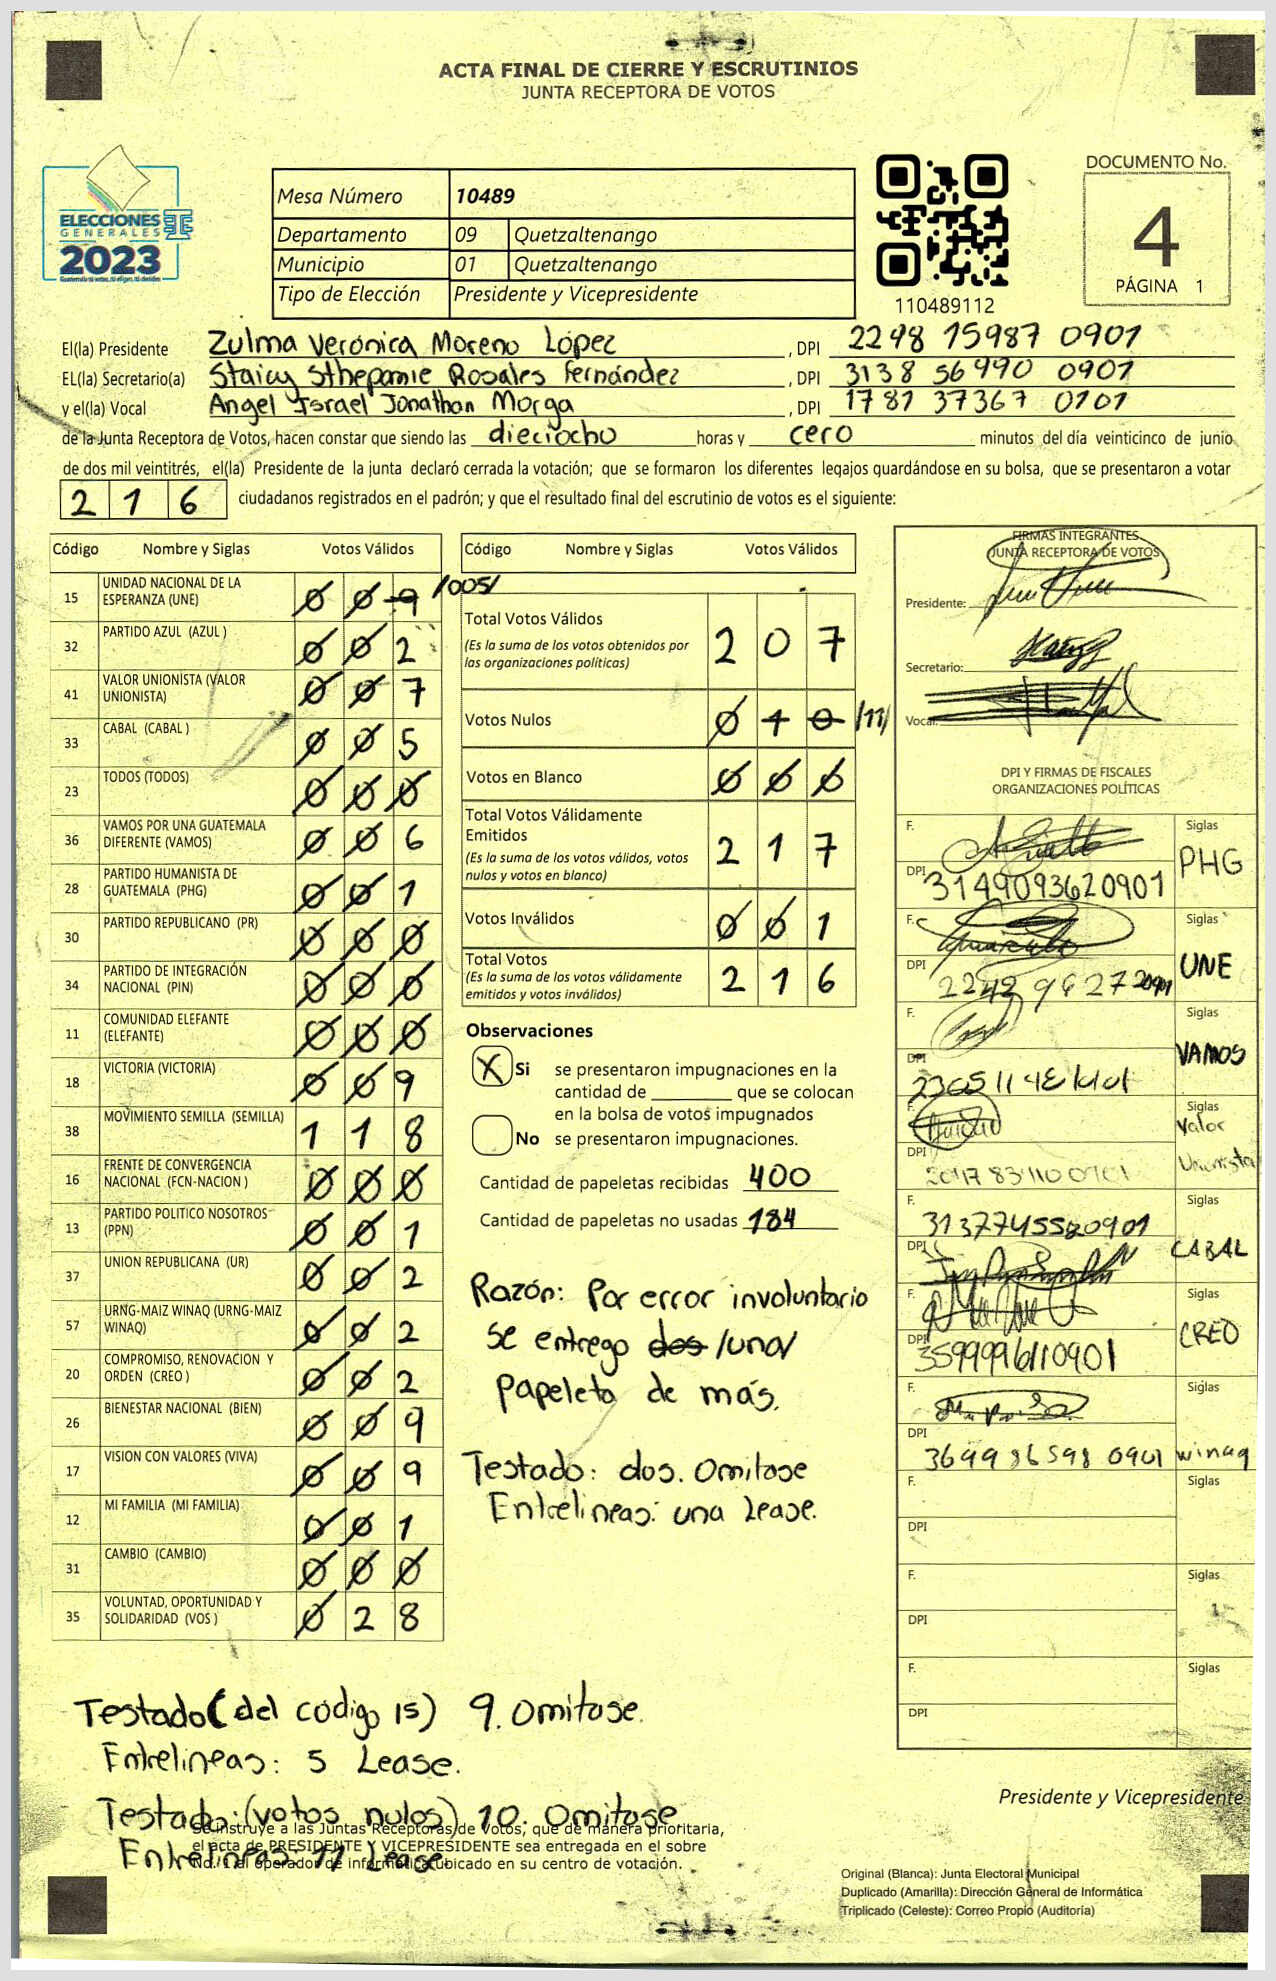 ACTA FINAL DE CIERRE Y ESCRUTINIOS
JUNTA RECEPTORA DE VOTOS
ELECCIONES
GENERALES
2023
Mesa Número 10489
Departamento 09 Quetzaltenango
Municipio 01 Quetzaltenango
Tipo de Elección Presidente y Vicepresidente
110489112
DOCUMENTO No.
4
PÁGINA 1
El(la) Presidente Zulma Verónica Moreno López, DPI 2298 15987 0901
EL(la) Secretario(a) Staicy Sthepanie Rosales Fernández, DPI 3138 56990 0901
y el(la) Vocal Angel Israel Jonathan Morga, DPI 1781 37367 0101
de la Junta Receptora de Votos, hacen constar que siendo las dieciocho horas y cero minutos del día veinticinco de junio
de dos mil veintitrés, el(la) Presidente de la junta declaró cerrada la votación; que se formaron los diferentes legajos guardándose en su bolsa, que se presentaron a votar
216 ciudadanos registrados en el padrón; y que el resultado final del escrutinio de votos es el siguiente:
Código Nombre y Siglas Votos Válidos
15 UNIDAD NACIONAL DE LA ESPERANZA (UNE) 0 0 9 /005/
32 PARTIDO AZUL (AZUL ) 0 0 2
41 VALOR UNIONISTA (VALOR UNIONISTA) 0 0 7
33 CABAL (CABAL ) 0 0 5
23 TODOS (TODOS) 0 0 0
36 VAMOS POR UNA GUATEMALA DIFERENTE (VAMOS) 0 0 6
28 PARTIDO HUMANISTA DE GUATEMALA (PHG) 0 0 1
30 PARTIDO REPUBLICANO (PR) 0 0 0
34 PARTIDO DE INTEGRACIÓN NACIONAL (PIN) 0 0 0
11 COMUNIDAD ELEFANTE (ELEFANTE) 0 0 0
18 VICTORIA (VICTORIA) 0 0 9
38 MOVIMIENTO SEMILLA (SEMILLA) 1 1 8
16 FRENTE DE CONVERGENCIA NACIONAL (FCN-NACION ) 0 0 0
13 PARTIDO POLITICO NOSOTROS (PPN) 0 0 1
37 UNION REPUBLICANA (UR) 0 0 2
57 URNG-MAIZ WINAQ (URNG-MAIZ WINAQ) 0 0 2
20 COMPROMISO, RENOVACION Y ORDEN (CREO ) 0 0 2
26 BIENESTAR NACIONAL (BIEN) 0 0 9
17 VISION CON VALORES (VIVA) 0 0 9
12 MI FAMILIA (MI FAMILIA) 0 0 1
31 CAMBIO (CAMBIO) 0 0 0
35 VOLUNTAD, OPORTUNIDAD Y SOLIDARIDAD (VOS ) 0 2 8
Código Nombre y Siglas Votos Válidos
Total Votos Válidos 2 0 7
(Es la suma de los votos obtenidos por
las organizaciones políticas)
Votos Nulos 0 1 0 /11/
Votos en Blanco 0 0 0
Total Votos Válidamente
Emitidos 2 1 7
(Es la suma de los votos válidos, votos
nulos y votos en blanco)
Votos Inválidos 0 0 1
Total Votos 2 1 6
(Es la suma de los votos válidamente
emitidos y votos inválidos)
Observaciones
X Si se presentaron impugnaciones en la
cantidad de ________ que se colocan
en la bolsa de votos impugnados
No se presentaron impugnaciones.
Cantidad de papeletas recibidas 400
Cantidad de papeletas no usadas 184
Razón: Por error involuntario
se entrego dos /una/
papeleta de más.
Testado: dos. Omitase
Entrelineas: una Lease.
FIRMAS INTEGRANTES
JUNTA RECEPTORA DE VOTOS
Presidente:
Secretario:
Vocal:
DPI Y FIRMAS DE FISCALES
ORGANIZACIONES POLÍTICAS
F. Siglas
DPI 3149093620901 PHG
F. Siglas
DPI UNE
F. Siglas
DPI VAMOS
F. Siglas
DPI Valor
Unionista
F. Siglas
3137745580901
DPI CABAL
F. Siglas
DPI 3599996110901 CREO
F. Siglas
DPI 3699 86598 0901 winaq
F. Siglas
DPI
F. Siglas
DPI
F. Siglas
DPI
Testado (del codigo 15) 9. Omitase.
Entrelineas: 5 Lease.
Testado: (votos nulos) 10. Omitase
Entrelineas: 11 Lease
Se instruye a las Juntas Receptoras de Votos, que de manera prioritaria,
el acta de PRESIDENTE Y VICEPRESIDENTE sea entregada en el sobre
No. 1 al operador de informática ubicado en su centro de votación.
Presidente y Vicepresidente
Original (Blanca): Junta Electoral Municipal
Duplicado (Amarilla): Dirección General de Informática
Triplicado (Celeste): Correo Propio (Auditoría)